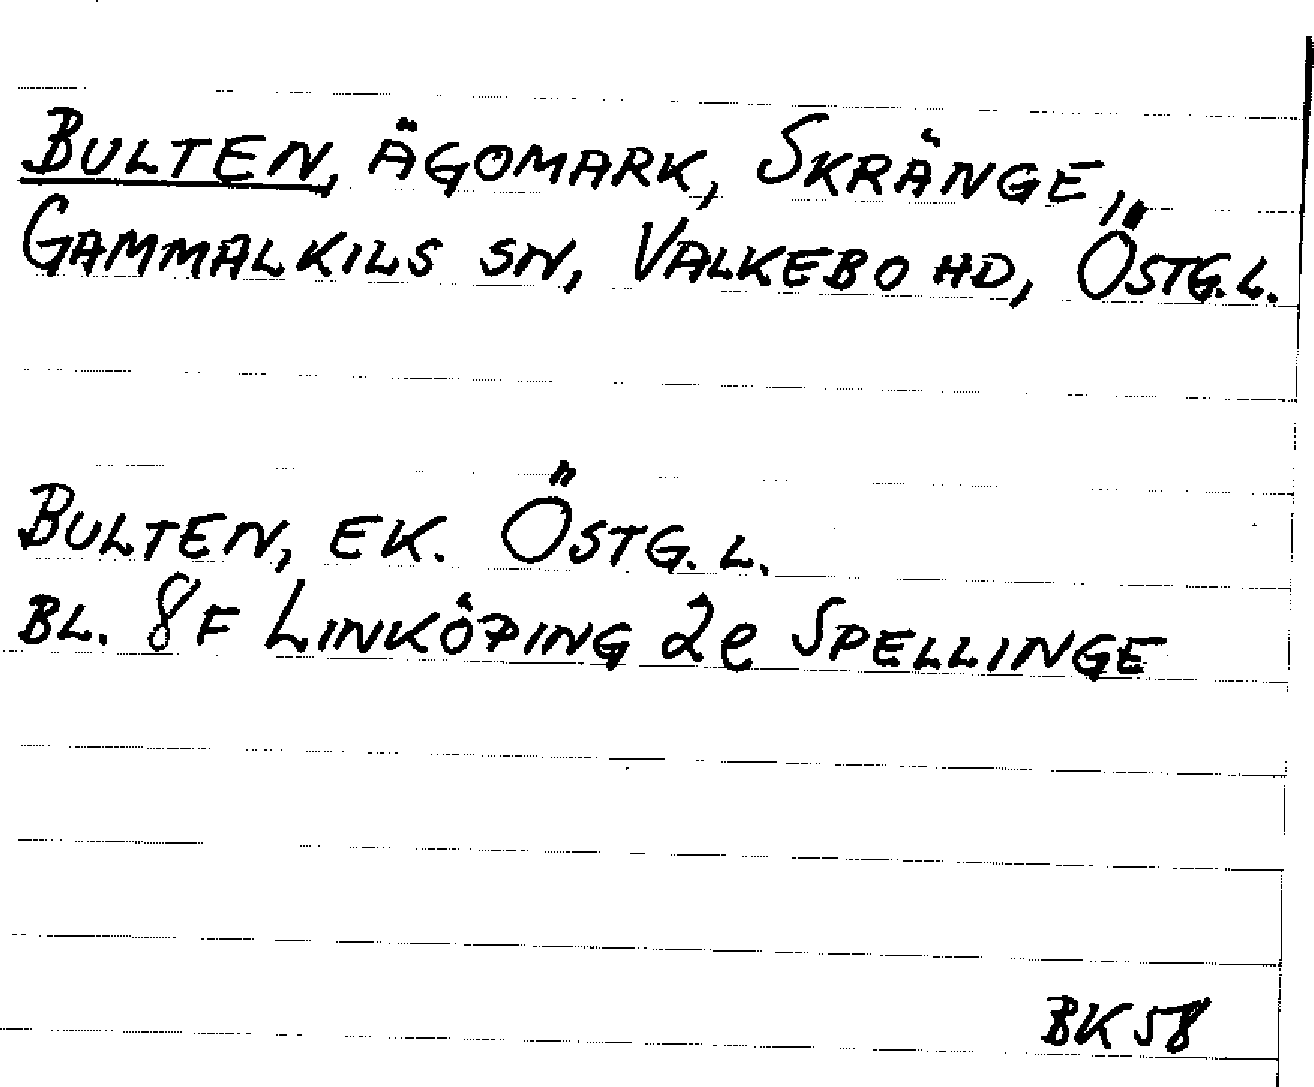 BULTEN, ÄGOMARK, SKRÄNGE,
GAMMALKILS SN, VALKEBO HD, ÖSTG.L.
BULTEN, EK. ÖSTG.L.
BL. 8F LINKÖPING 2e SPELLINGE
BK58